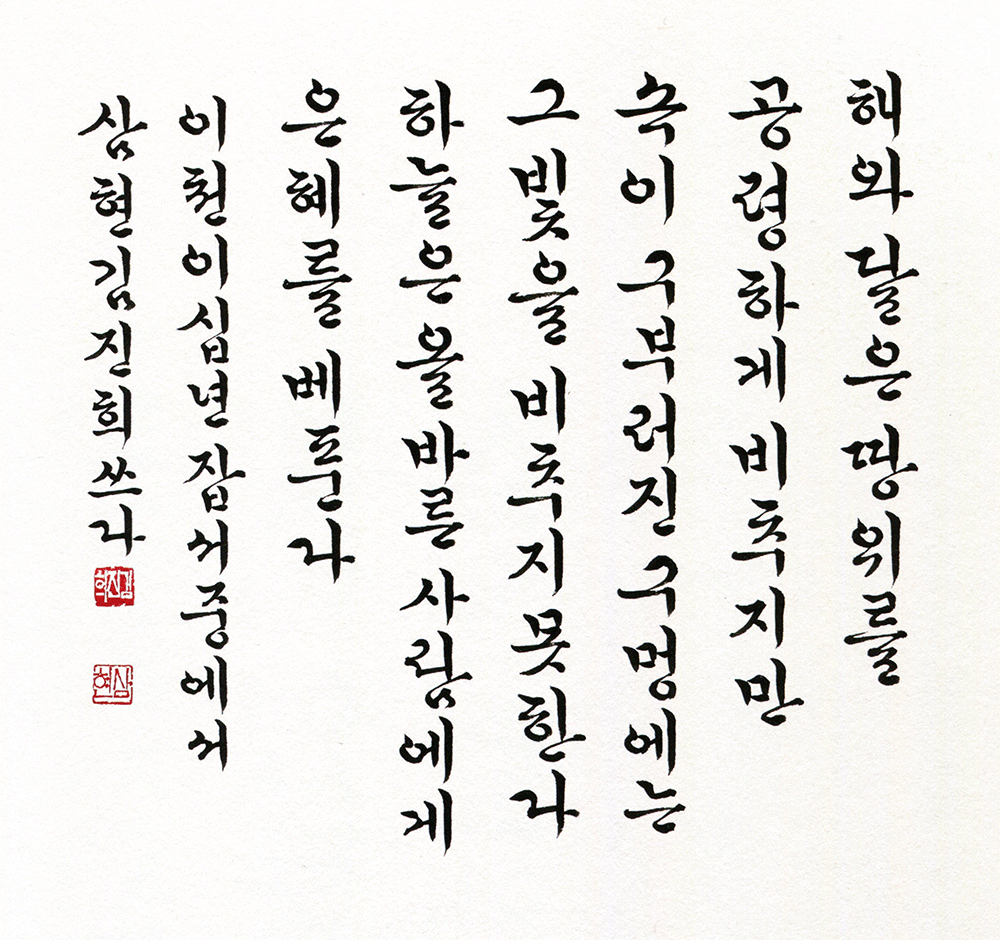 해와 달은 땅 위를
공평하게 비추지만
속이 구부러진 구멍에는
그 빛을 비추지 못한다
하늘은 올바른 사람에게
은혜를 베푼다
이천이십년 잡서중에서
삼현 김진희 쓰다
김진희
삼현